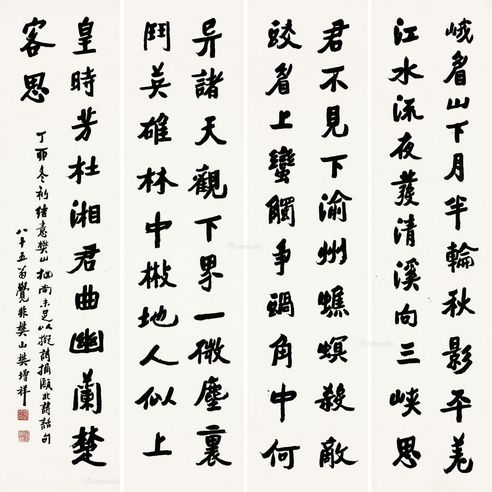 峨眉山下月半輪秋影平羌
江水流夜發清溪向三峽思
君不見下渝州蟭螟殺敵
蚊眉上蠻觸爭蝸角中何
异諸天觀下界一微塵裏
鬥英雄林中地人似上
皇時芳杜湘君曲幽蘭楚
客思
丁卯冬初樊山尚未足以詩摘北詩話句
八十五翁覺非樊山樊增祥